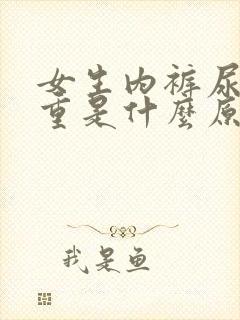 女生内裤尿
重是什麼原
我是鱼